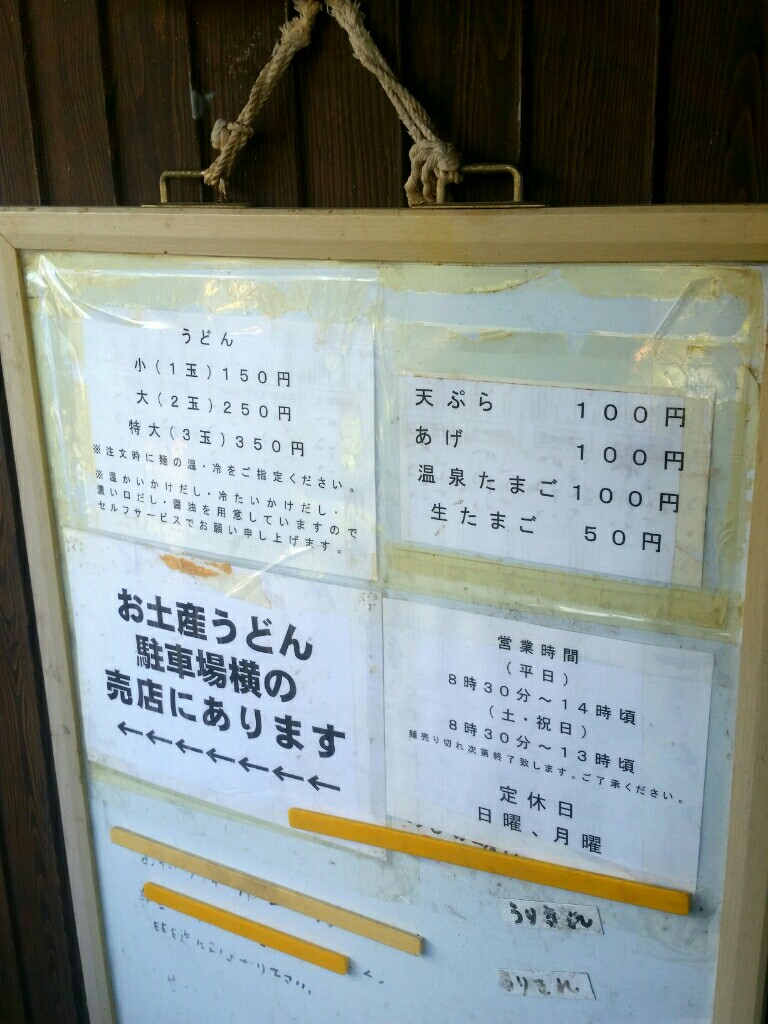 うどん
小(1玉)150円
大(2玉)250円
特大(3玉)350円
※注文時に麺の温・冷をご指定ください。
※温かいかけだし・冷たいかけだし・
濃い口だし・醤油を用意していますので
セルフサービスでお願い申し上げます。
天ぷら 100円
あげ 100円
温泉たまご 100円
生たまご 50円
お土産うどん
駐車場横の
売店にあります
←←←←←←←
営業時間
(平日)
8時30分~14時頃
(土・祝日)
8時30分~13時頃
麺売り切れ次第終了致します。ご了承ください。
定休日
日曜、月曜
うりきれ
うりきれ